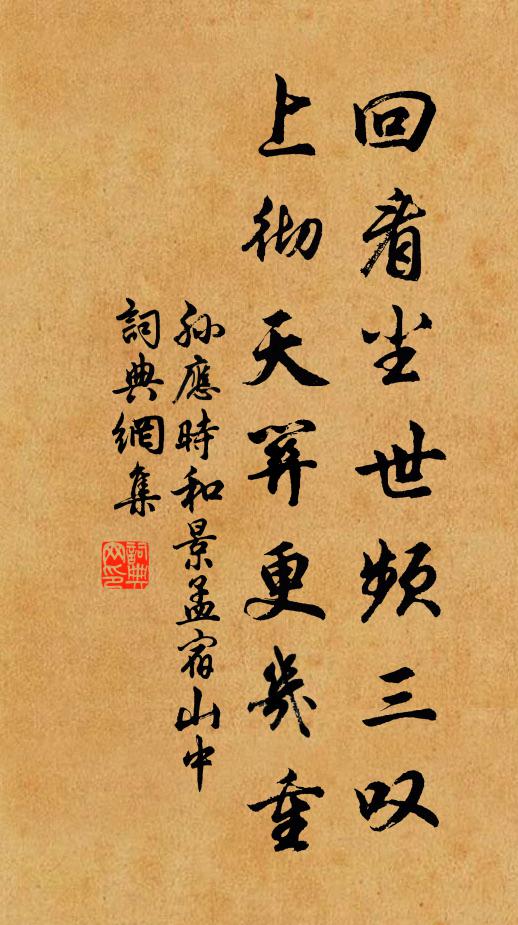 回看尘世频三叹
上彻天关更几重
孙應時和景孟宿山中
詞典網集
詞典
网印